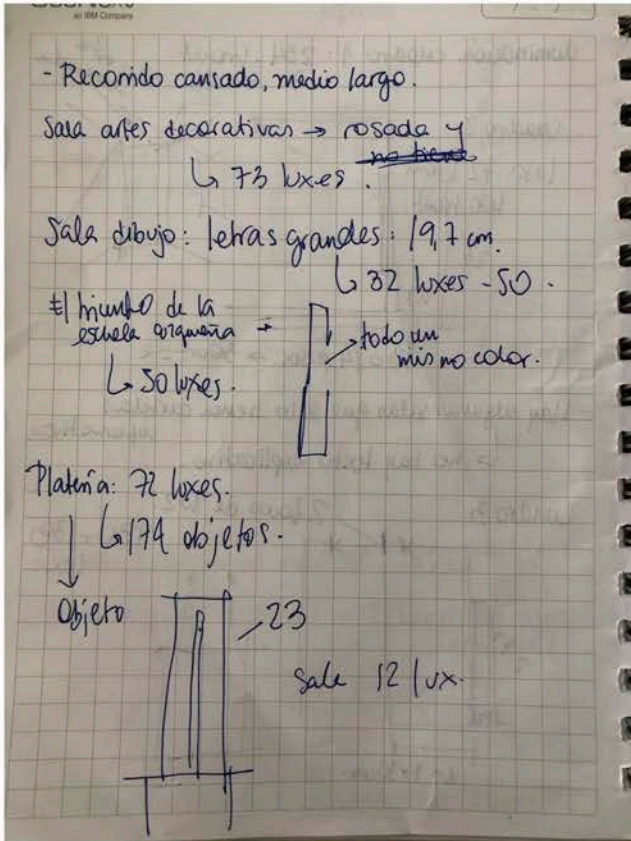 an IBM Company
- Recorrido cansado, medio largo.
Sala artes decorativas → rosada y
no tiene
↳ 73 luxes.
Sala dibujo: letras grandes: 19,7 cm.
↳ 32 luxes - 50.
El triunfo de la
escuela →
↳ 50 luxes.
todo un
mismo color.
Platería: 72 luxes.
↳ 174 objetos.
Objeto
23
Sala 12 lux.